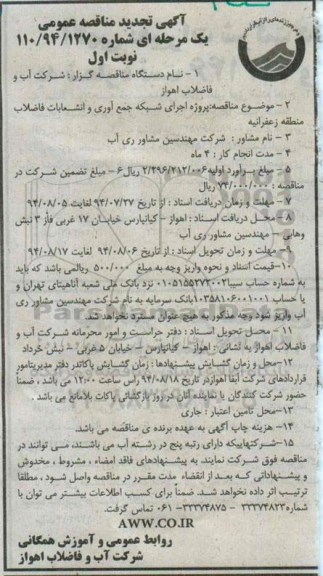 آگهی تجدید مناقصه عمومی
یک مرحله ای شماره ۱۱۰/۹۴/۱۲۷۰
نوبت اول
۱- نـام دستگاه مناقصـه گـزار : شـرکت آب و
فاضلاب اهواز
۲- موضـوع مناقصه:پروژه اجرای شبکه جمع آوری و انشعابات فاضلاب
منطقه زعفرانیه
۳- نام مشاور : شرکت مهندسین مشاور ری آب
۴- مدت انجام کار : ۴ ماه
۵- مبلغ بـرآورد اولیه۲/۴۹۶/۲۱۲/۰۰۶ ریال ۶- مبلغ تضمین شرکت در
مناقصه : ۷۴/۰۰۰/۰۰۰ ریال
۷- مهلت و زمان دریافت اسناد : از تاریخ ۹۴/۰۷/۲۷ لغایت ۹۴/۰۸/۰۵
۸- محـل دریافت اسـناد : اهواز - کیانپارس خیابـان ۱۷ غربی فاز ۳ نبش
وهابی - مهندسین مشاور ری آب
۹- مهلت و زمان تحویل اسناد : از تاریخ ۹۴/۰۸/۰۶ لغایت ۹۴/۰۸/۱۷
۱۰-قیمت اسناد و نحوه واریز وجه به مبلغ ۵۰۰/۰۰۰ ریالمی باشد که باید
به شماره حساب سیبا۰۱۰۵۱۵۵۲۷۲۰۰۲ نزد بانک ملی شعبه آناهیتای تهران و
یا حساب ۱۰۳۵۸۱۰۶۰۰۱۰۰۱بانک سرمایه به نام شرکت مهندسین مشاور ری
آب واریز شود وجه مذکور به هیچ عنوان مسترد نخواهد شد
۱۱- محـل تحویل اسـناد : دفتر حراسـت و امور محرمانه شـرکت آب و
فاضلاب اهواز به نشانی : اهواز - کیانپارس - خیابان ۵ غربی - نبش خرداد
۱۲-محل و زمان گشـایش پیشـنهادها : زمان گشایش پاکاتدر دفتر مدیریتامور
قراردادهای شرکت آبفا اهوازدر تاریخ ۹۴/۰۸/۱۸ راس ساعت ۱۲:۰۰ می باشد ، ضمناً
حضور شرکت کنندگان یا نماینده آنان در روز بازگشائی پاکات بلامانع می باشد .
۱۳-محل تامین اعتبار : جاری
۱۴- هزینه چاپ آگهی به عهده برنده ی مناقصه می باشد.
۱۵-شـرکتهاییکه دارای رتبه پنج در رشـته آب می باشـند، می توانند در
مناقصه فوق شـرکت نمایند به پیشـنهادهای فاقد امضاء ، مشروط ، مخدوش
و پیشـنهاداتی کـه بعـد از انقضاء مدت مقرر در مناقصه واصل شـود ، مطلقا
ترتیب اثر داده نخواهـد شـد. ضمناً برای کسب اطلاعات بیشتر می توان با
شماره۳۳۳۷۴۸۲۳ - ۳۳۳۷۴۸۷۵- ۰۶۱ تماس گرفت.
AWW.CO.IR
روابط عمومی و آموزش همگانی
شرکت آب و فاضلاب اهواز